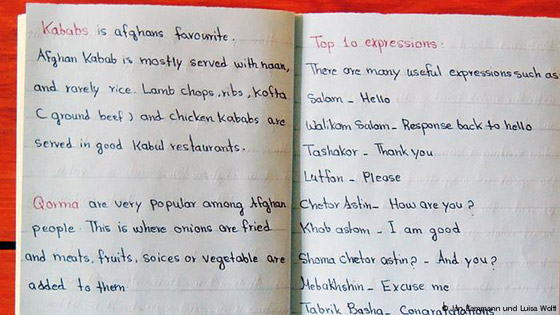 Kababs is afghans favourite.
Afghan Kabab is mostly served with naan,
and rarely rice. Lamb chops, ribs, Kofta
( ground beef ) and chicken Kababs are
served in good Kabul restaurants.
Qorma are very popular among Afghan
people. This is where onions are fried
and meats, fruits, spices or vegetable are
added to them
Top 10 expressions.
There are many useful expressions such as
Salam - Hello
Walikom Salam - Response back to hello
Tashakor - Thank you
Lutfan - Please
Chetor Astin - How are you?
Khob astom - I am good
Shoma chetor astin? - And you?
Mebakhshin - Excuse me
Tabrik Basha - Congratulations
und Luisa Wolf